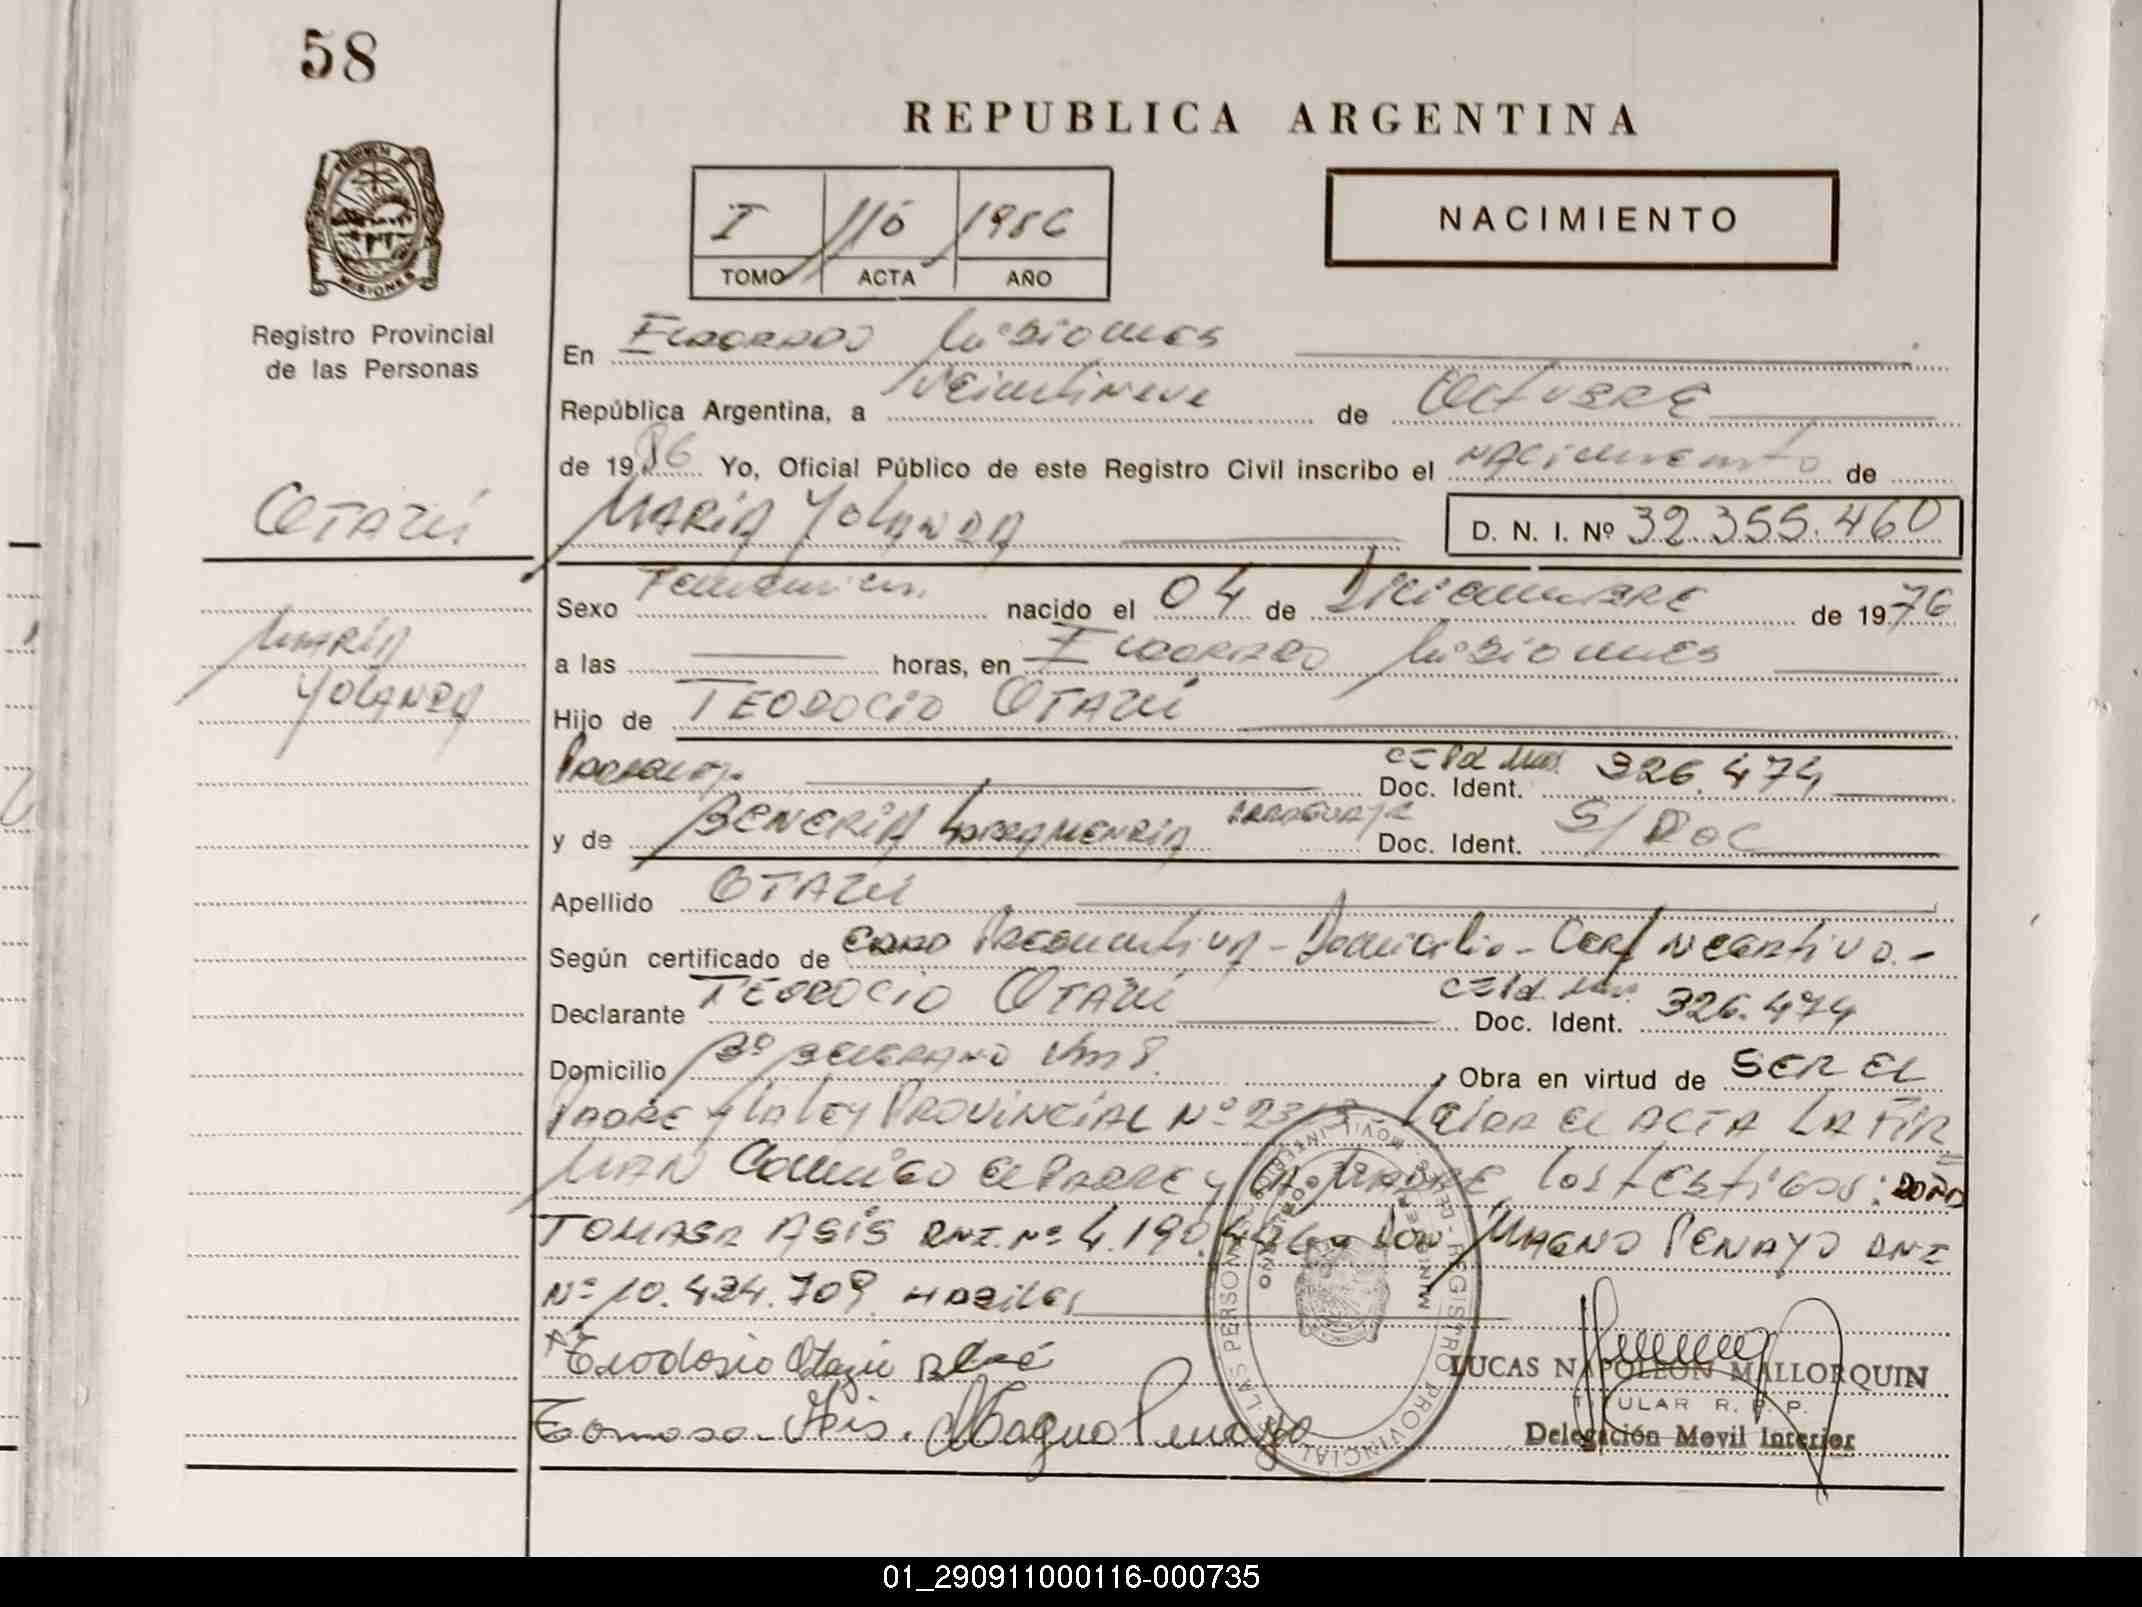 58
REPUBLICA ARGENTINA
I 116 1986
TOMO ACTA AÑO
NACIMIENTO
MISIONES
Registro Provincial
de las Personas
En ELDORADO Misiones
República Argentina, a Veintinueve de OctuBRE
de 1986 Yo, Oficial Público de este Registro Civil inscribo el NACimiento de
OTAZÚ
MARÍA YOLANDA D. N. I. Nº 32.355.460
Sexo Femenino nacido el 04 de DiciemBRE de 1976
MARÍA
YOLANDA
a las horas, en ELDORADO Misiones
Hijo de TEODOCIO OTAZÚ
Paraguayo Doc. Ident. CZ Id. Mis. 326.474
y de BENERIDA PARAGUAYA Doc. Ident. S/ DOC
Apellido OTAZÚ
Según certificado de Domicilio - Cert NEGAtivo.-
Declarante TEODOCIO OTAZÚ Doc. Ident. CZ Id. Mis. 326.474
Domicilio Bº BELGRANO Km 8. Obra en virtud de SER EL
PADRE y la LEy PROVINCIAL Nº Leída EL ACTA LA FIR
MAN Conmigo El PADRE y LA MADRE, los testigos: DOÑA
TOMASA ASÍS DNI. Nº 4.190. y Don MAGNO PENAYO DNI
Nº 10.424.709 HABILES
Teodosio Otazú
Tomasa Asis. Magno Penayo
LUCAS NAPOLEON MALLORQUIN
TITULAR R. P. P.
Delegación Movil Interior
REGISTRO PROVINCIAL DE LAS PERSONAS
01_290911000116-000735